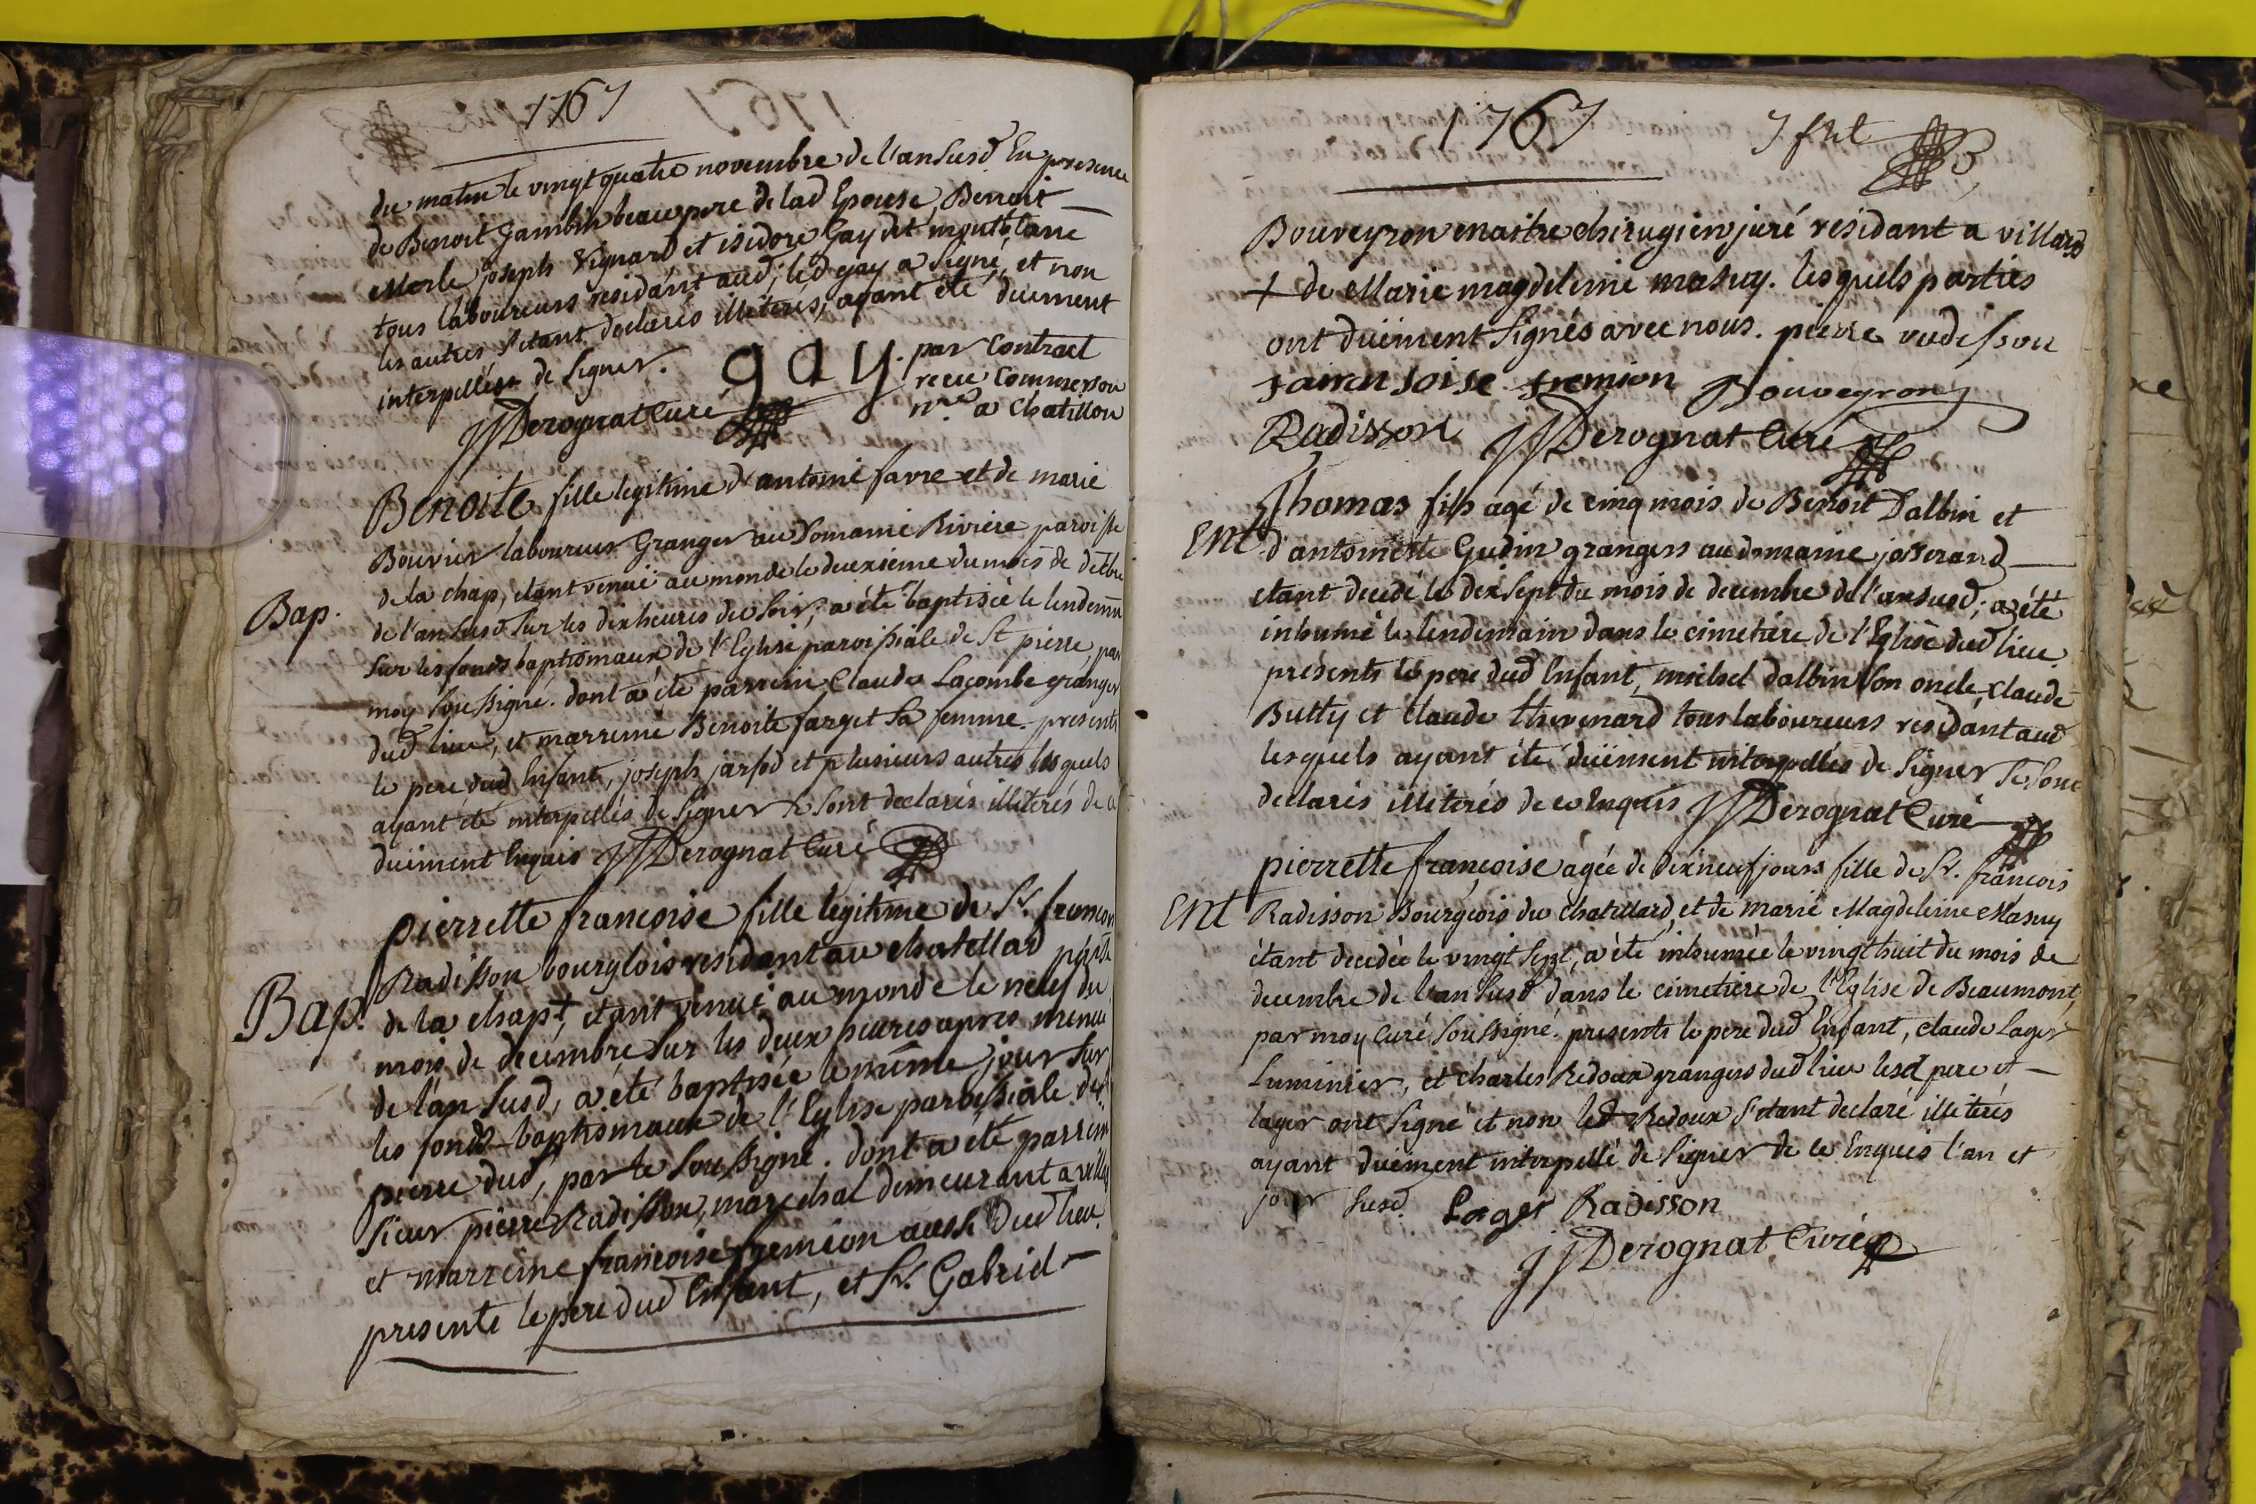 1767
du matin le vingt quatre novembre de l'an susd En presence
de Benoit Gambin beaupere de lad Epouse, Benoit
Merle joseph Vignard et isidore Gay dit
tous laboureurs residant aud; led gay a signé, et non
les autres s'etant declarés illiterés, ayant été duement
interpellés de signer.
gay. par contract
receu Commerson
nre a chatillon
JJ Derognat Curé
Benoite fille legitime d'antoine favre et de marie
Bouvier laboureur Granger au Domaine Riviere paroisse
de la chap, etant venuë au monde le deuxieme du mois de
Bap. de l'an susd sur les dix heures du soir, a été baptisée le lendemain
sur les fonds baptismaux de l'Eglise paroissiale de St pierre, par
moy soussigné. dont a été parrein Claude Lacombe granger
dud lieu, et marreine Benoite farget sa femme. presents
le pere dud Enfant, joseph et plusieurs autres lesquels
ayant été interpellés de signer se sont declarés illiterés de ce
duëment Enquis JJ Derognat Curé
pierrette francoise fille legitime de Sr. francois
Radisson bourgeois residant au chatellard
Bap. de la chapt, etant venuë au monde le neuf du
mois de decembre, sur les deux heures apres minuit
de l'an susd, a été baptisée le même jour sur
les fonds baptismaux de l'Eglise paroissiale de St
pierre dud, par le soussigné. dont a été parrein
sieur pierre Radisson, marechal demeurant a villars
et marreine francoise fremion aussi dud lieu.
presents le pere dud Enfant, et Sr. Gabriel
1767
Bouveyron maitre chirugien juré residant a villars
+ de Marie magdeleine masuy. lesquels parties
ont duëment signés avec nous. pierre
francoise fremion Bouveyron
Radisson JJ Derognat Curé
Thomas fils agé de cinq mois de Benoit Dalbin et
Ent d'antoinette Gudin grangers au domaine josserand
etant decedé le dixsept du mois de decembre de l'an susd; a été
inhumé le lendemain dans le cimetiere de l'Eglise dud lieu.
presents le pere dud Enfant, michel dalbin son oncle, claude
Butty et claude thevenard tous laboureurs residant aud
lesquels ayant été duëment interpellés de signer se sont
declarés illiterés de ce Enquis JJ Derognat Curé
pierrette françoise agée de dixneuf jours fille de Sr. françois
Ent Radisson Bourgeois du chatellard, et de marie Magdeleine Masuy
étant decedée le vingt sept, a été inhumée le vingt huit du mois de
decembre de l'an susd dans le cimetiere de l'Eglise de Beaumont,
par moy curé soussigné. presents le pere dud Enfant, claude Lager
Luminier, et charles Redoux grangers dud lieu lesd pere et
lager ont signé et non led Redoux s'etant declaré illiterés
ayant duëment interpellé de signer de ce Enquis l'an et
jour susd. Lager Radisson
JJ Derognat Curé